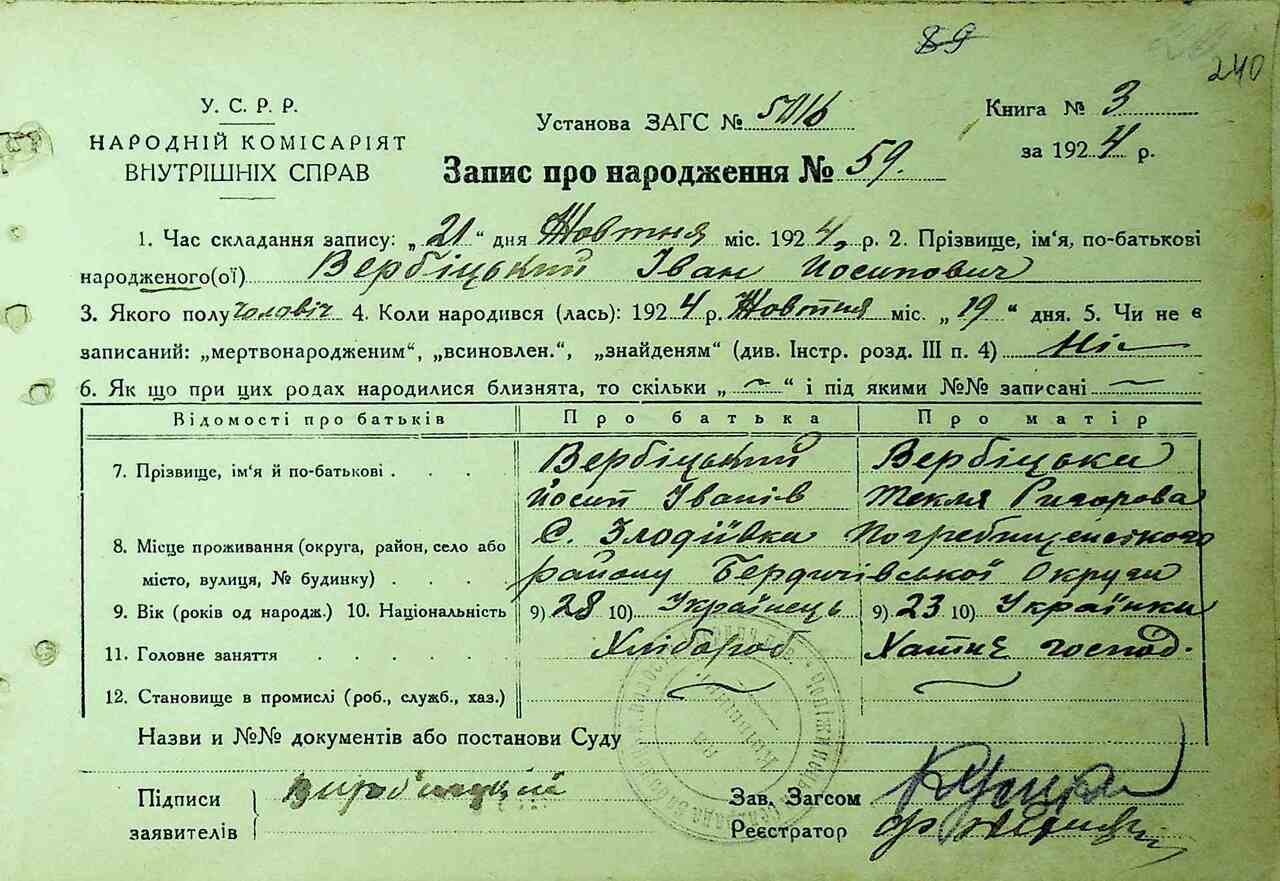 89
240
У. С. Р. Р.
НАРОДНІЙ КОМІСАРІЯТ
ВНУТРІШНІХ СПРАВ
Установа ЗАГС №
Книга № 3
за 1924 р.
Запис про народження № 59.
1. Час складання запису: „ 21 “ дня Жовтня міс. 1924. р. 2. Прізвище, ім'я, по-батькові
народженого(ої) Вербіцький Іван Йосипович
3. Якого полу чоловіч 4. Коли народився (лась): 1924 р. Жовтня міс. „ 19 “ дня. 5. Чи не є
записаний: „мертвонародженим“, „всиновлен.“, „знайденям“ (див. Інстр. розд. III п. 4) Ні
6. Як що при цих родах народилися близнята, то скільки „ ~ “ і під якими №№ записані —
Відомості про батьків Про батька Про матір
7. Прізвище, ім'я й по-батькові . . . Вербіцький Вербіцька
Йосип Іванів Текля Ригорова
8. Місце проживання (округа, район, село або С. Злодіївка Погребищенського
місто, вулиця, № будинку) . . . . району Бердичівської Округи
9. Вік (років од народж.) 10. Національність 9) 28 10) Українець 9) 23 10) Українка
11. Головне заняття . . . . . Хлібороб Хатнє господ.
12. Становище в промислі (роб., служб., хаз.) — —
Назви и №№ документів або постанови Суду
Підписи
заявителів
Зав. Загсом
Реєстратор